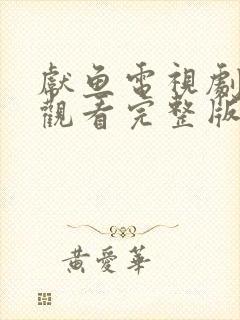 獻魚電視劇
觀看完整版
黃愛華